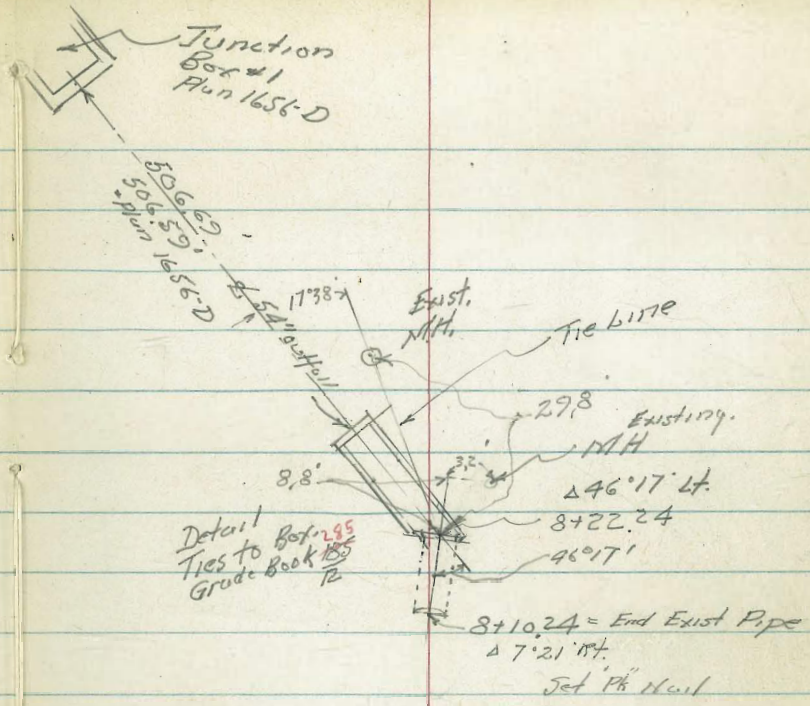 Junction
Box #1
Plan 1656-D
506.69'
506.59'
Plan 1656-D
℄ 54" outfall
17°38'
Exist.
M.H.
Tie Line
29.8'
Existing.
MH
3.2'
8.8'
Δ 46°17' Lt.
8+22.24
46°17'
Detail
Ties to Box. 285
Grade Book 185
12
8+10.24 = End Exist Pipe
Δ 7°21' Rt.
Set "PK" Nail